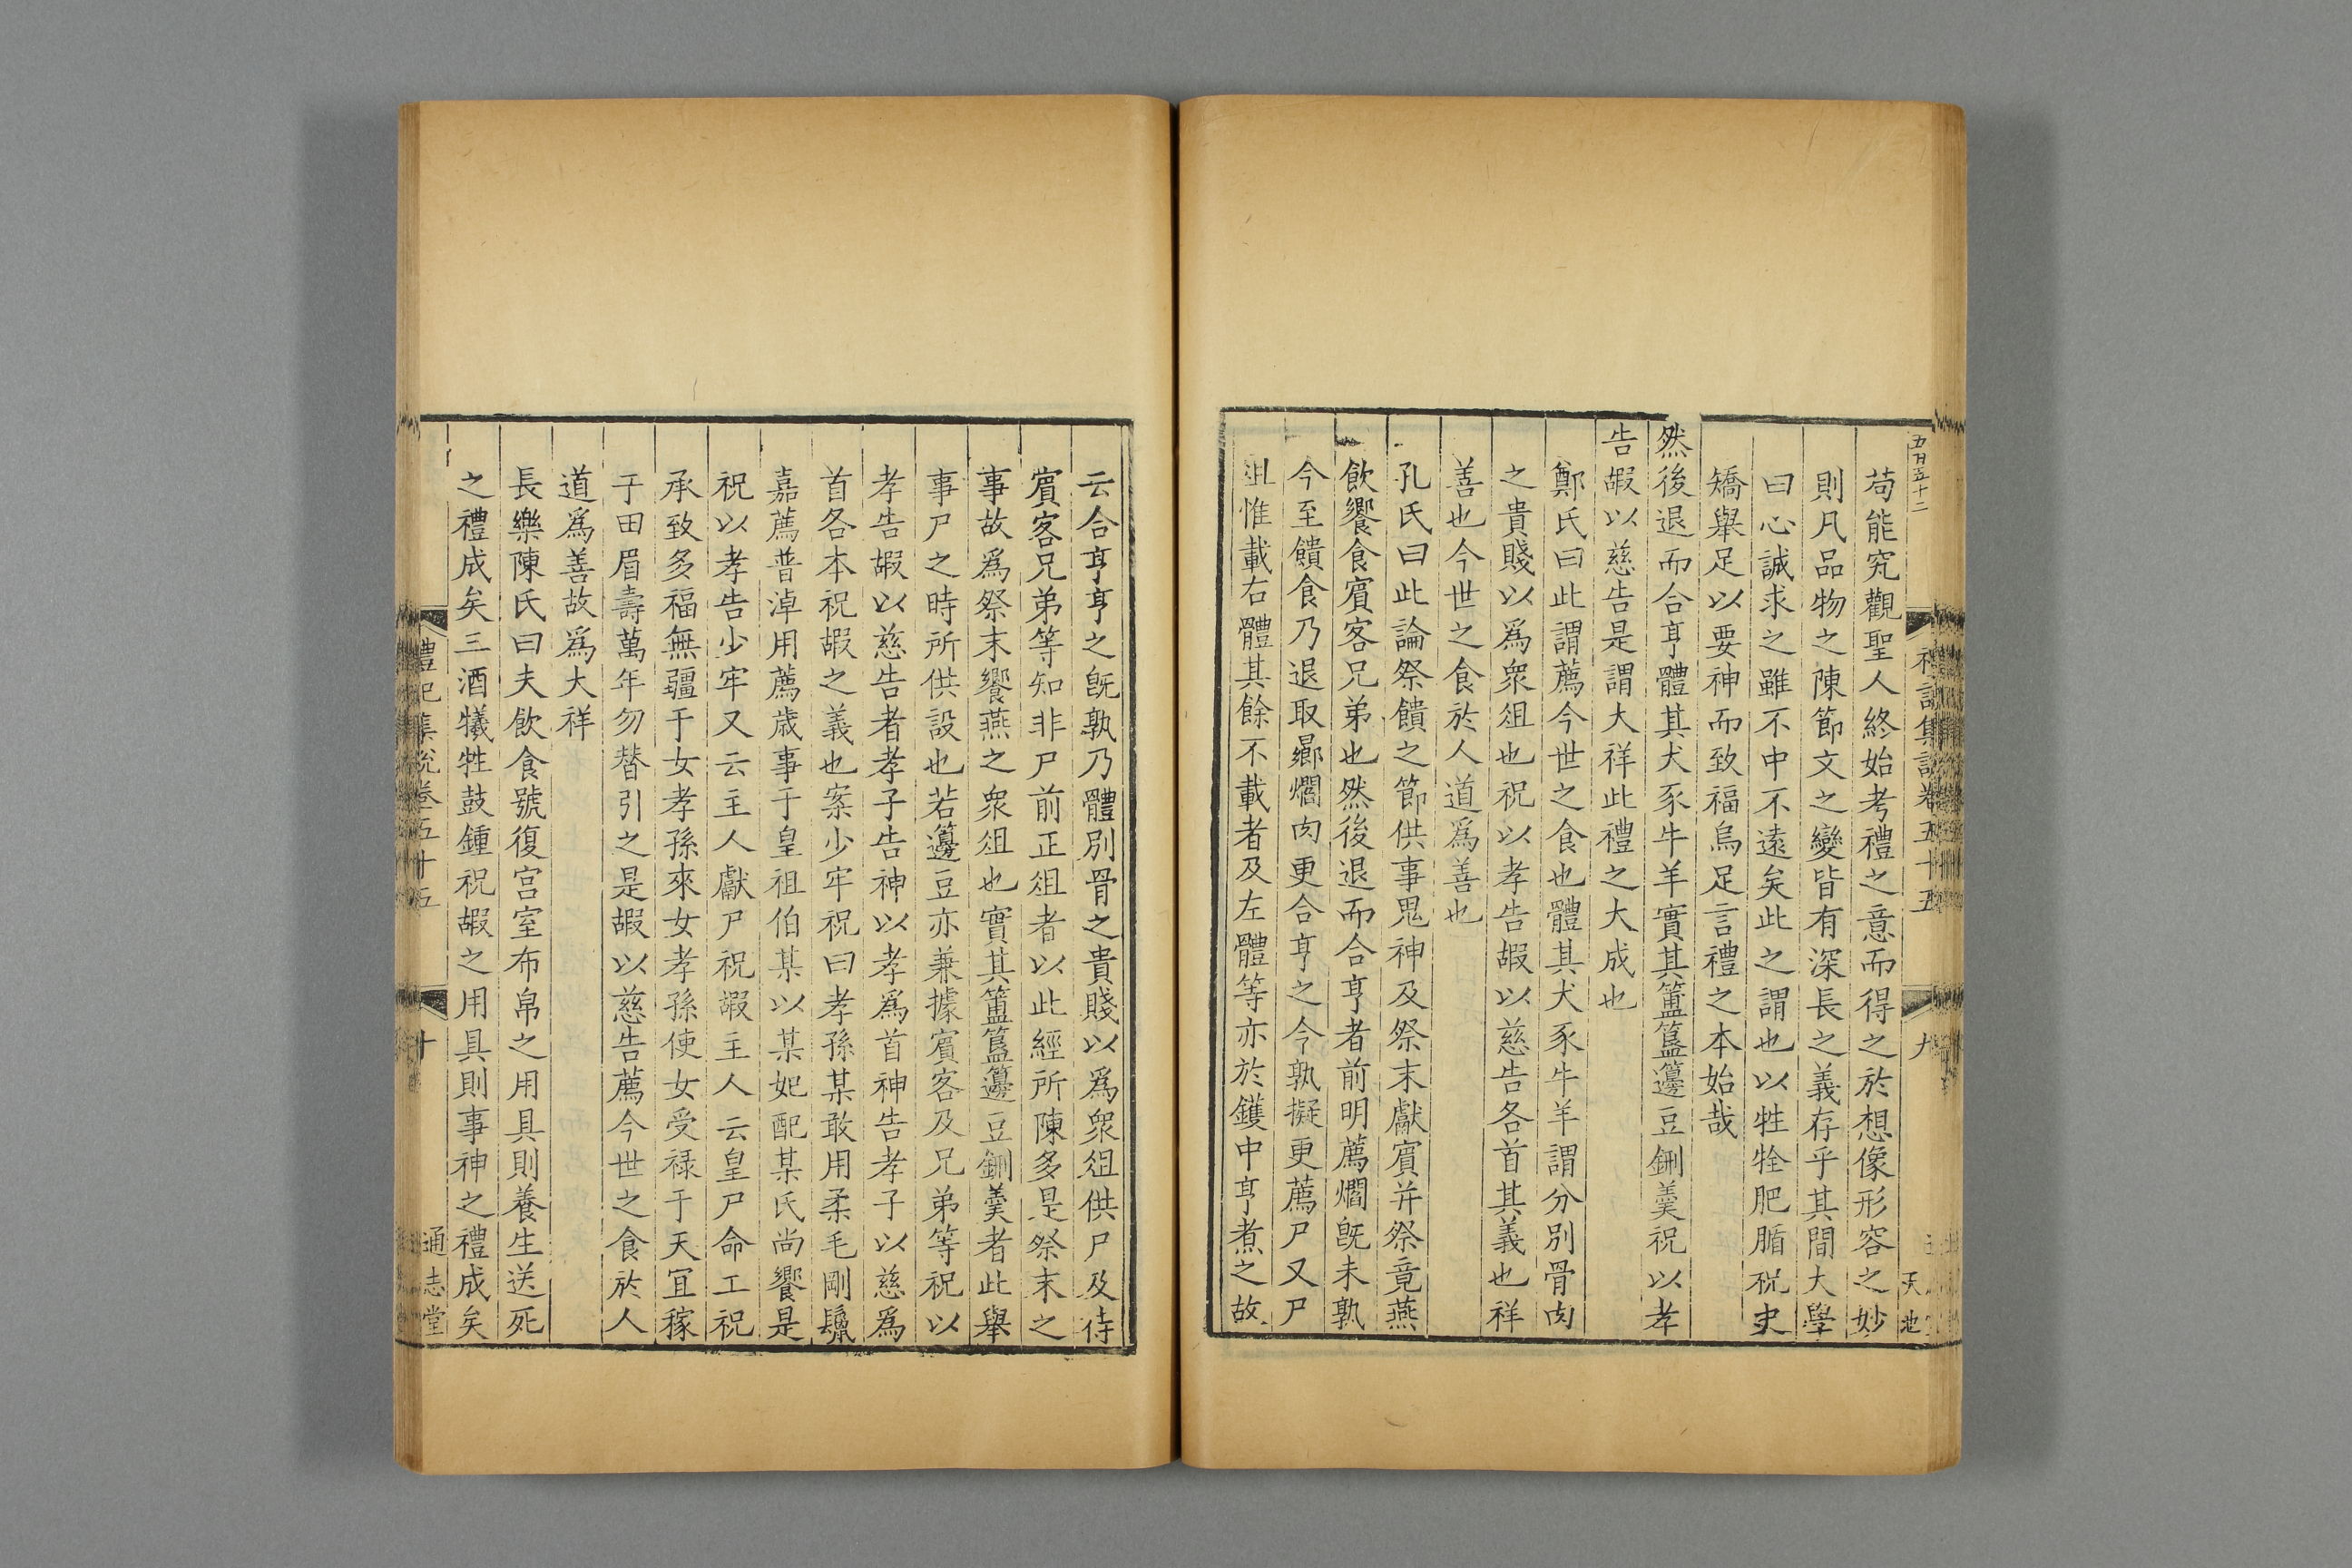 苟能究觀聖人終始考禮之意而得之於想像形容之妙
則凡品物之陳節文之變皆有深長之義存乎其間大學
曰心誠求之雖不中不遠矣此之謂也以牲牷肥腯祝史
矯舉足以要神而致福烏足言禮之本始哉
然後退而合亨體其犬豕牛羊實其簠簋籩豆鉶羹祝以孝
告嘏以慈告是謂大祥此禮之大成也
鄭氏曰此謂薦今世之食也體其犬豕牛羊謂分別骨肉
之貴賤以爲衆俎也祝以孝告嘏以慈告各首其義也祥
善也今世之食於人道爲善也
孔氏曰此論祭饋之節供事鬼神及祭末獻賓并祭竟燕
飲饗食賓客兄弟也然後退而合亨者前明薦爓旣未孰
今至饋食乃退取曏爓肉更合亨之令孰擬更薦尸又尸
俎惟載右體其餘不載者及左體等亦於鑊中亨煮之故
云合亨亨之旣孰乃體別骨之貴賤以爲衆俎供尸及待
賓客兄弟等知非尸前正俎者以此經所陳多是祭末之
事故爲祭末饗燕之衆俎也實其簠簋籩豆鉶羹者此舉
事尸之時所供設也若籩豆亦兼據賓客及兄弟等祝以
孝告嘏以慈告者孝子告神以孝爲首神告孝子以慈爲
首各本祝嘏之義也案少牢祝曰孝孫某敢用柔毛剛鬛
嘉薦普淖用薦歲事于皇祖伯某以某妃配某氏尚饗是
祝以孝告少牢又云主人獻尸祝嘏主人云皇尸命工祝
承致多福無疆于女孝孫來女孝孫使女受祿于天宜稼
于田眉壽萬年勿替引之是嘏以慈告薦今世之食於人
道爲善故爲大祥
長樂陳氏曰夫飲食號復宮室布帛之用具則養生送死
之禮成矣三酒犧牲鼓鍾祝嘏之用具則事神之禮成矣
禮記集說卷五十五
十
通志堂